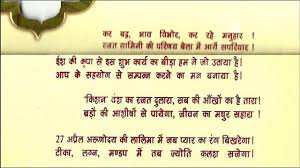 कर बद्ध, भाव विभोर, कर रहे मनुहार !
रजत यामिनी की परिणय बेला में आयें सपरिवार !
ईश की कृपा से इस शुभ कार्य का बीड़ा हम ने जो उठाया है।
आप के सहयोग से सम्पन्न करने का मन बनाया है।
'किशन' वंश का रजत दुलारा, सब की आँखों का है तारा।
बड़ों की आशीषों से पायेगा, जीवन का मधुर सहारा।
27 अप्रैल अरूणोदय की लालिमा में जब प्यार का रंग बिखरेगा।
टीका, लग्न, मण्डप में तब ज्योति कलश सजेगा।